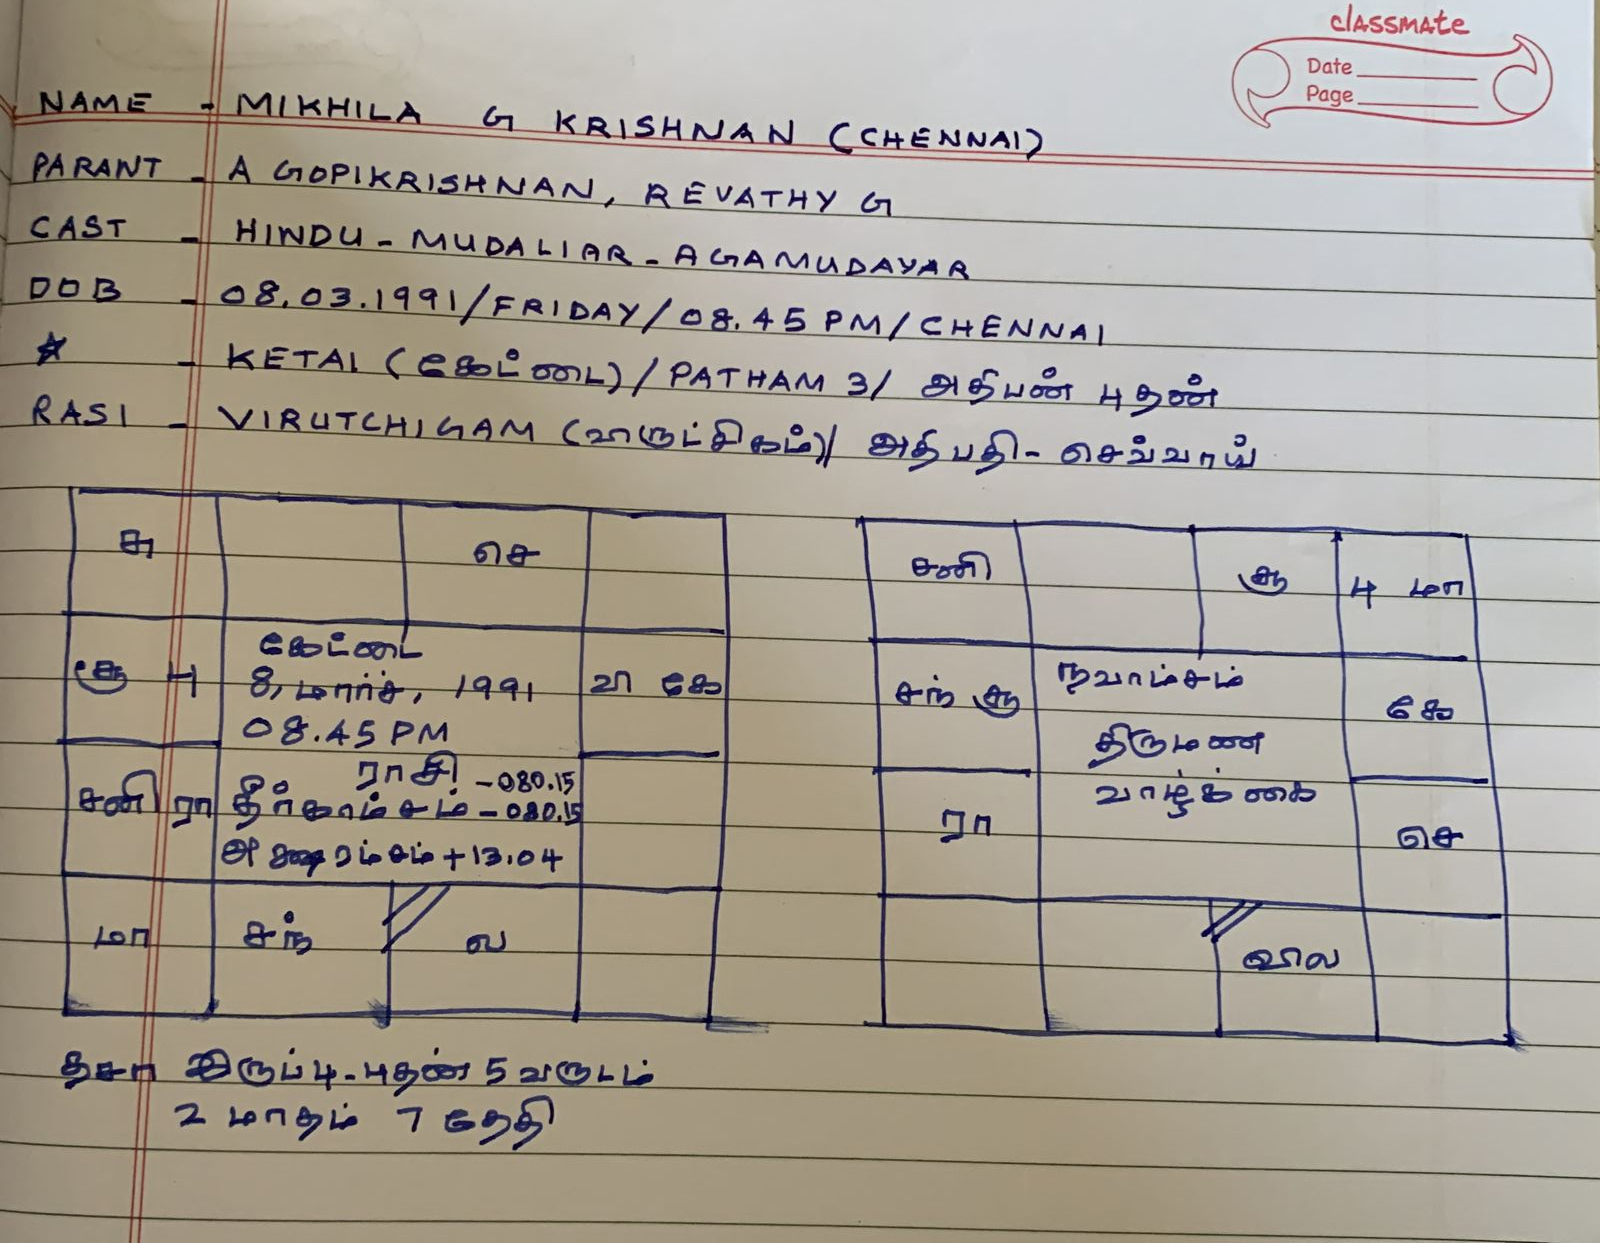 classmate
Date
Page
NAME - MIKHILA G KRISHNAN (CHENNAI)
PARANT - A GOPIKRISHNAN, REVATHY G
CAST - HINDU - MUDALIAR - AGAMUDAYAR
DOB - 08.03.1991/FRIDAY/08.45 PM/CHENNAI
☆ - KETAI (கேட்டை)/PATHAM 3/ அதிபண் புதண்
RASI - VIRUTCHIGAM (விருட்சிகம்)/ அதிபதி - செவ்வாய்
சு செ
சனி கு பு மா
கு பு கேட்டை வி கே
8, மார்ச், 1991
08.45 PM
சந் சூ நவாம்சம் கே
திருமண
வாழ்க்கை
சனி ரா ராசி - 080.15
தீர்காம்சம் - 080.15
+ 13.04
ரா செ
மா சந் ல
வி ல
தசா இருப்பு - புதண் 5 வருடம்
2 மாதம் 7 தேதி